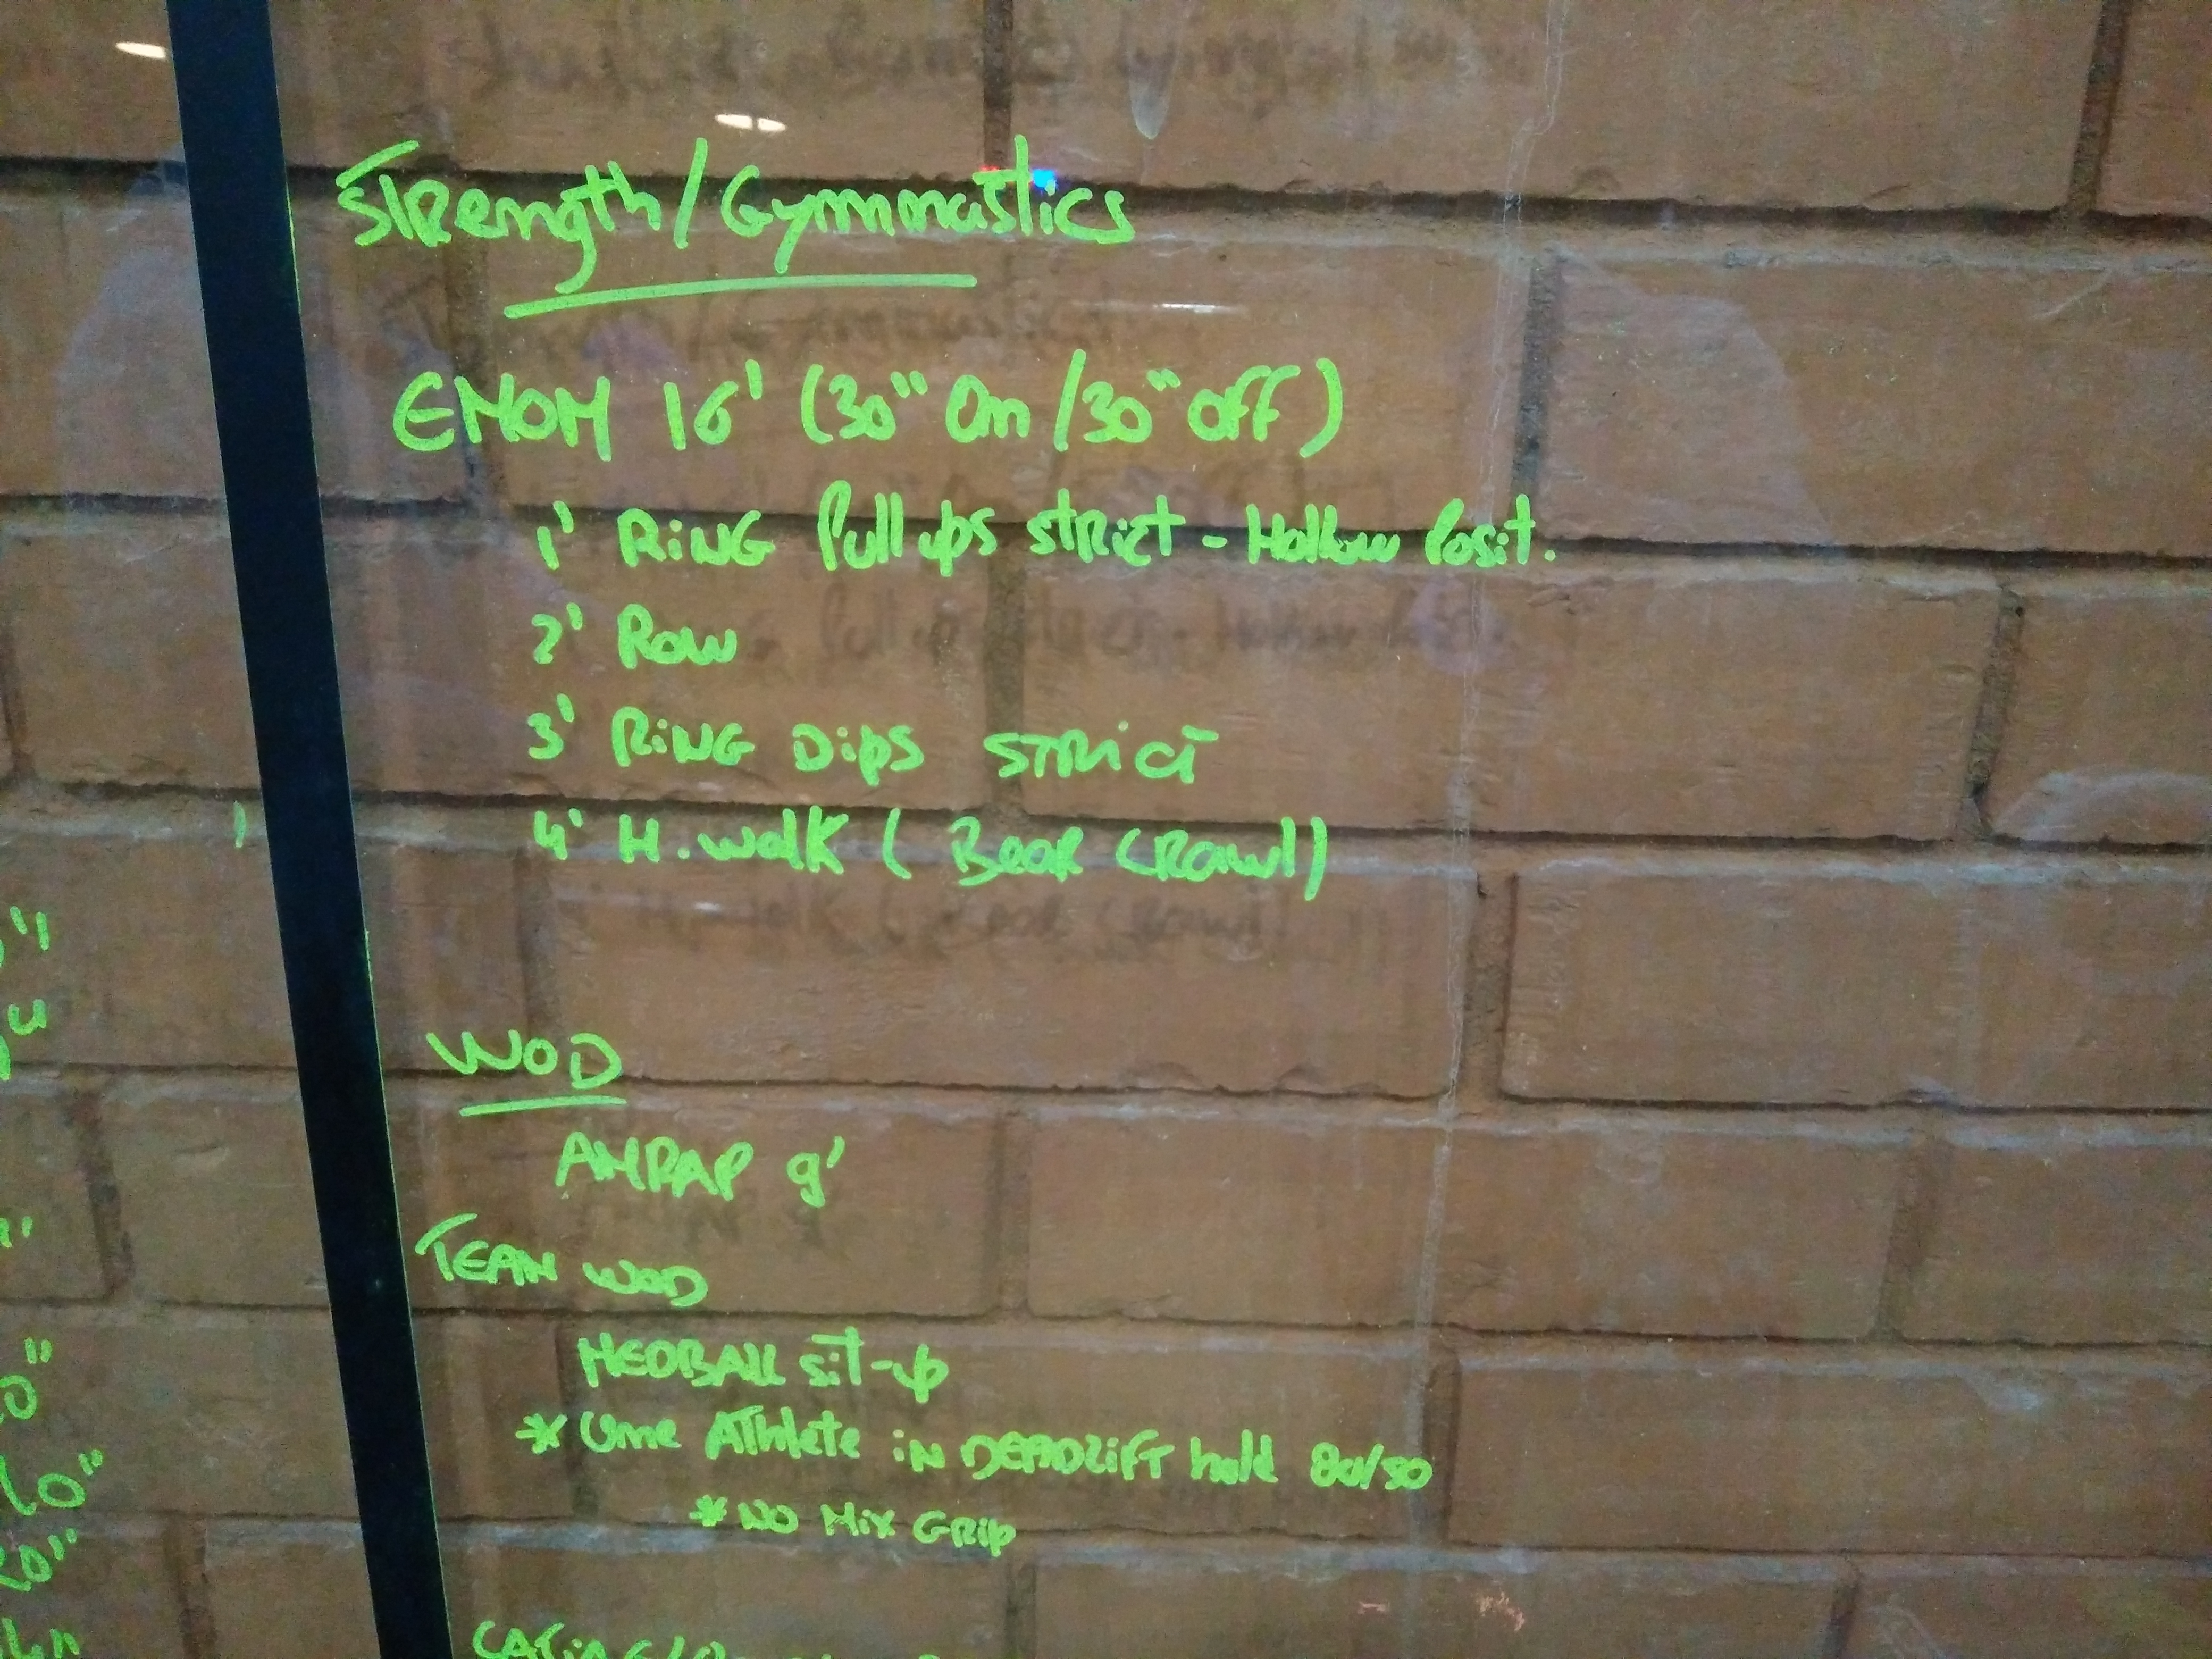 Strength/Gymnastics
EMOM 16' (30" On/30" off)
1' RiNG Pull ups strict - Hollow Posit.
2' Row
3' RiNG Dips STRICT
4' H. walk ( Bear CRawl)
WOD
AMRAP 9'
TEAM WOD
MEDBALL sit-up
* One Athlete iN DEADLiFT hold 80/50
* NO Mix GRip